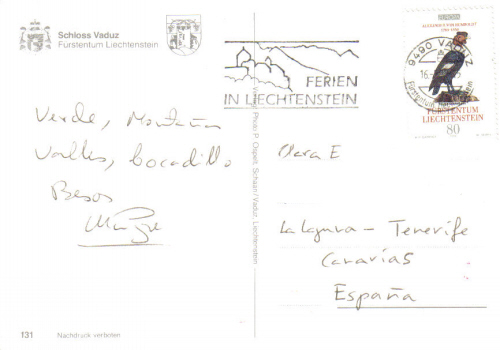 Schloss Vaduz
Fürstentum Liechtenstein
FERIEN
IN LIECHTENSTEIN
9490 VADUZ
ALEXANDER VON HUMBOLDT
FÜRSTENTUM
LIECHTENSTEIN
80
Verde, Montaña
Valles, bocadillo
Besos
Clara E
La Laguna - Tenerife
Canarias
España
Verlag + Photo P. Ospelt, Schaan/Vaduz, Liechtenstein
131 Nachdruck verboten